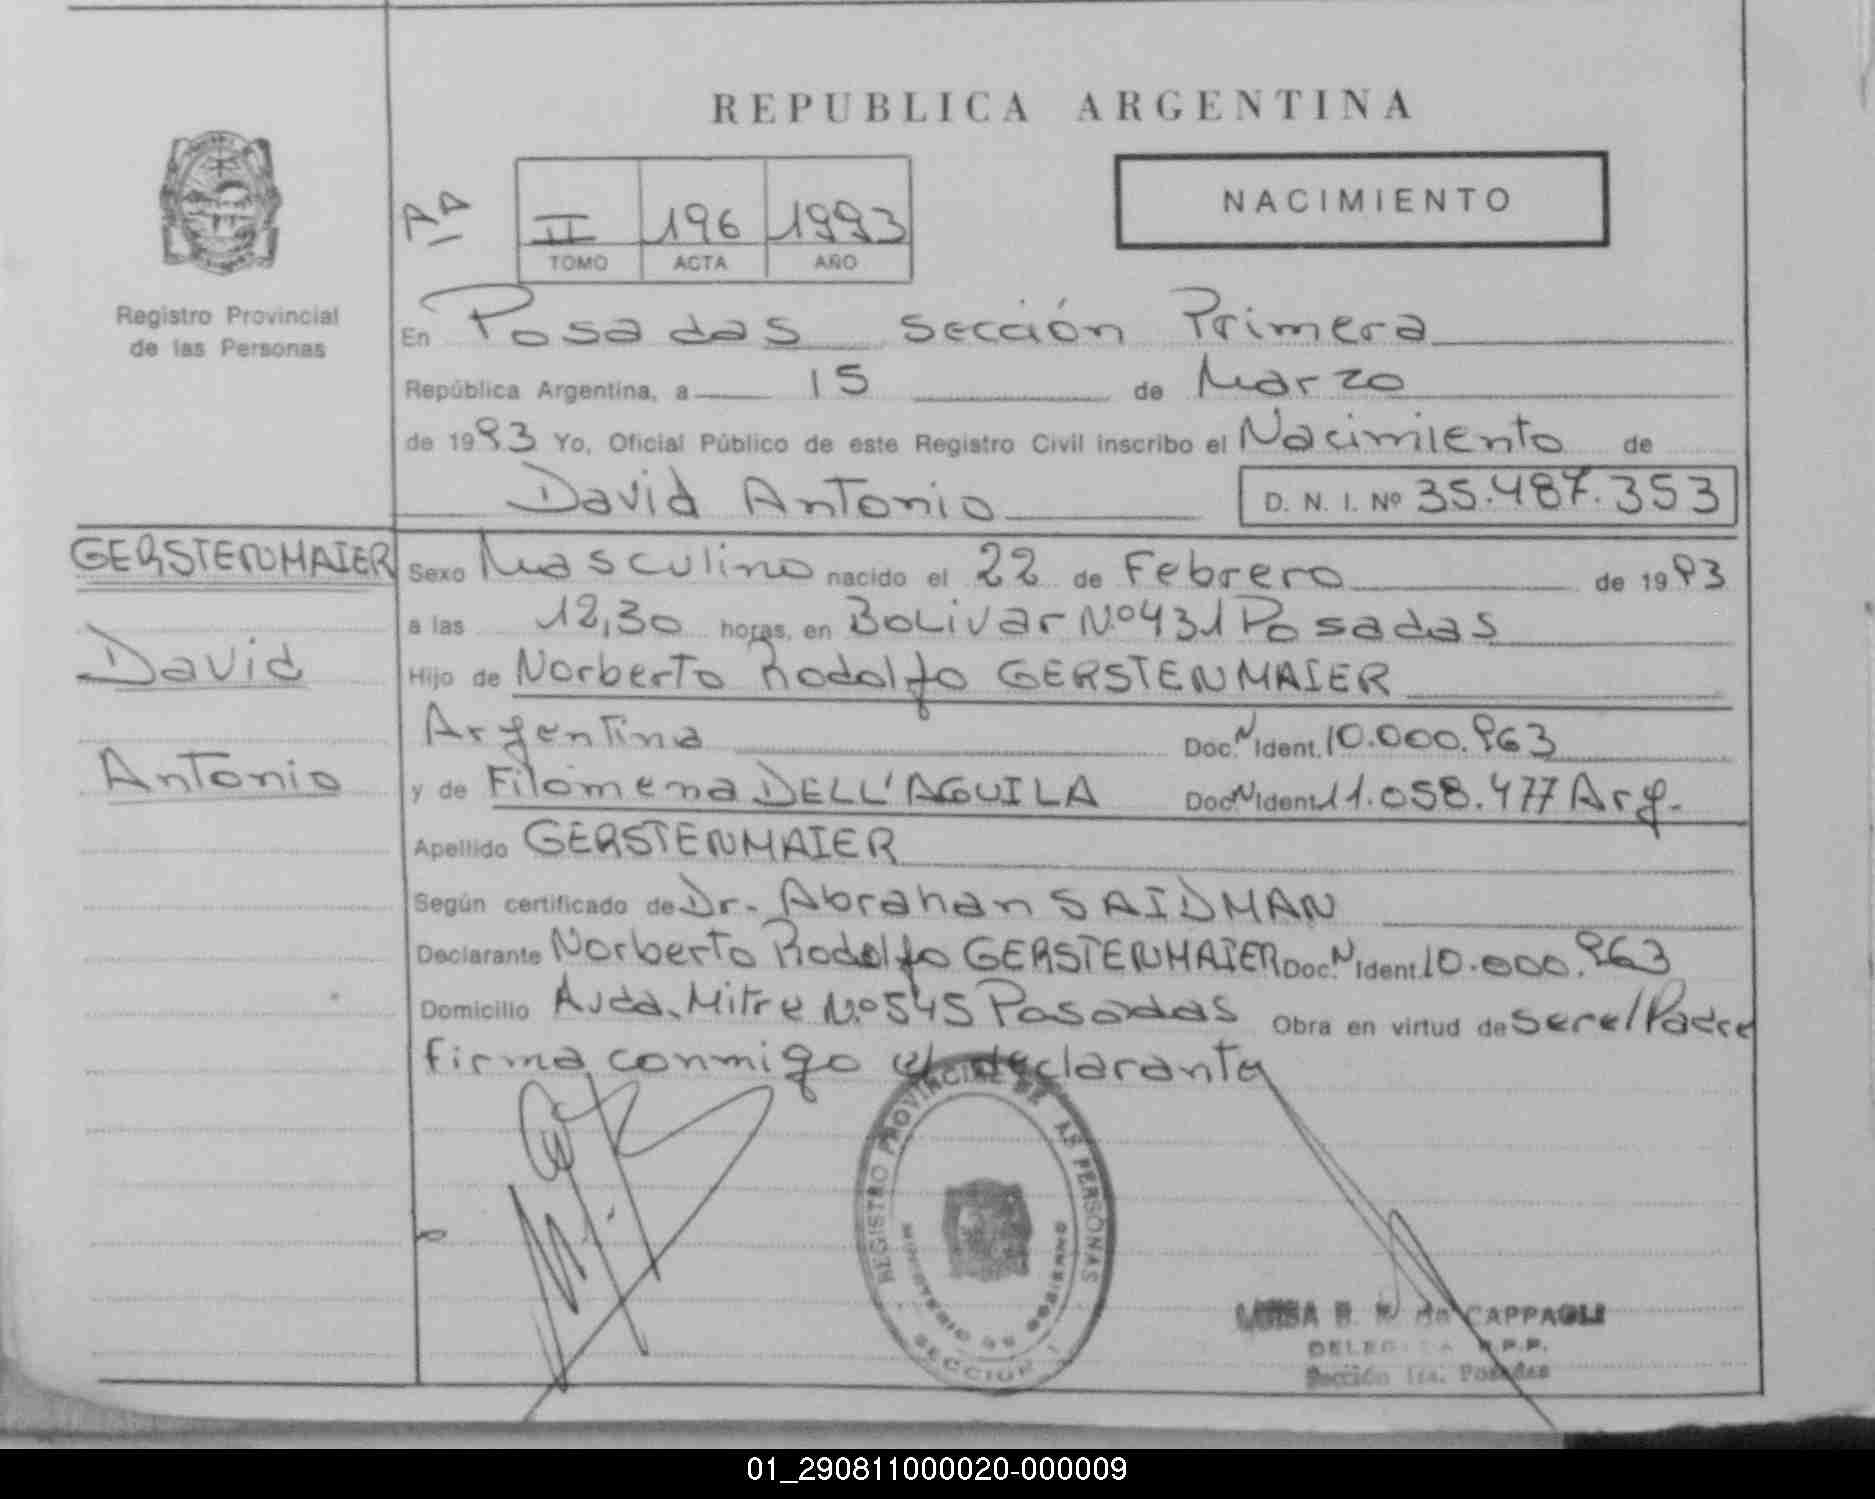 REPUBLICA ARGENTINA
NACIMIENTO
AA
II 196 1993
TOMO ACTA AÑO
Registro Provincial
de las Personas
En Posadas sección Primera
República Argentina, a 15 de Marzo
de 1993 Yo, Oficial Público de este Registro Civil inscribo el Nacimiento de
David Antonio D. N. I. Nº 35.487.353
GERSTENMAIER
David
Antonio
Sexo Masculino nacido el 22 de Febrero de 1993
a las 12,30 horas, en Bolivar Nº 431 Posadas
Hijo de Norberto Rodolfo GERSTENMAIER
Argentina Doc. N Ident. 10.000.963
y de Filomena DELL'AGUILA Doc. N Ident. 11.058.477 Arg.
Apellido GERSTENMAIER
Según certificado de Dr. Abrahan SAIDMAN
Declarante Norberto Rodolfo GERSTENMAIER Doc. N Ident. 10.000.963
Domicilio Avda. Mitre Nº 545 Posadas Obra en virtud de ser el Padre
firma conmigo el declarante
REGISTRO PROVINCIAL DE LAS PERSONAS
MINISTERIO DE GOBIERNO
SECCION 1
LUISA B. de CAPPAGLI
R.P.P.
Sección 1ra. Posadas
01_290811000020-000009